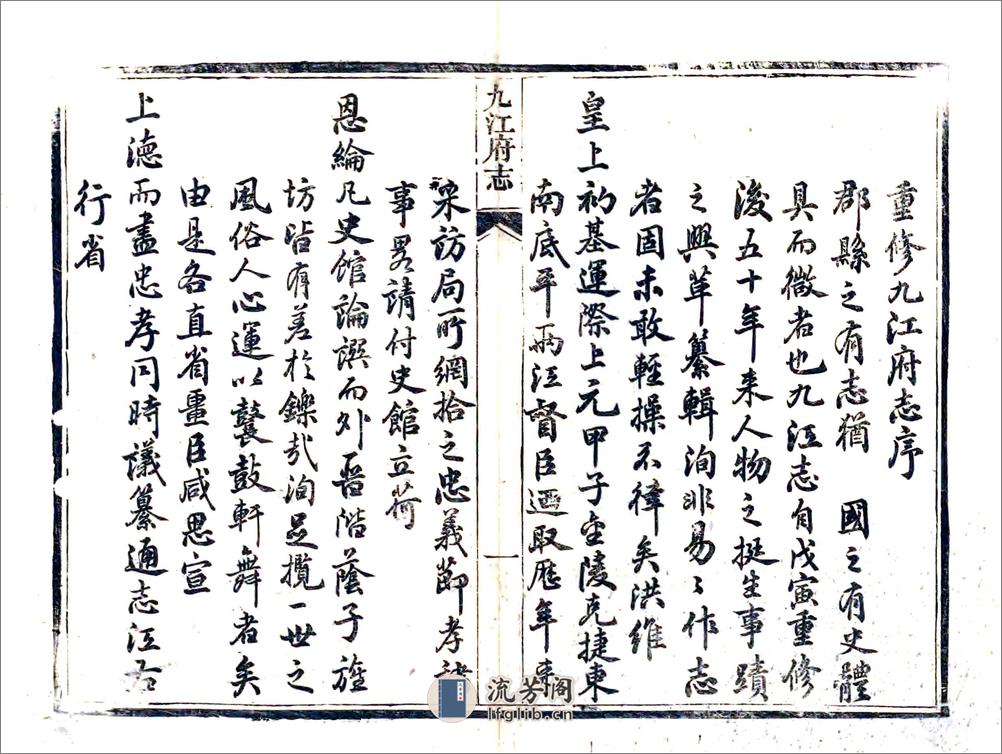 重修九江府志序
郡縣之有志猶 國之有史體
具而微者也九江志自戊寅重修
後五十年来人物之挺生事蹟
之興革纂輯洵非易易作志
者固未敢輕操不律矣洪維
皇上初基運際上元甲子金陵克捷東
南底平兩江督臣迺取歷年来
九江府志
一
采訪局所網拾之忠義節孝諸
事畧請付史館立荷
恩綸凡史館論譔而外晉階蔭子旌
坊沾有差於鑠哉洵足攬一世之
風俗人心運以鼚鼓軒舞者矣
由是各直省疆臣咸思宣
上德而盡忠孝同時議纂通志江右
行省
流芳阁
lfglib.cn